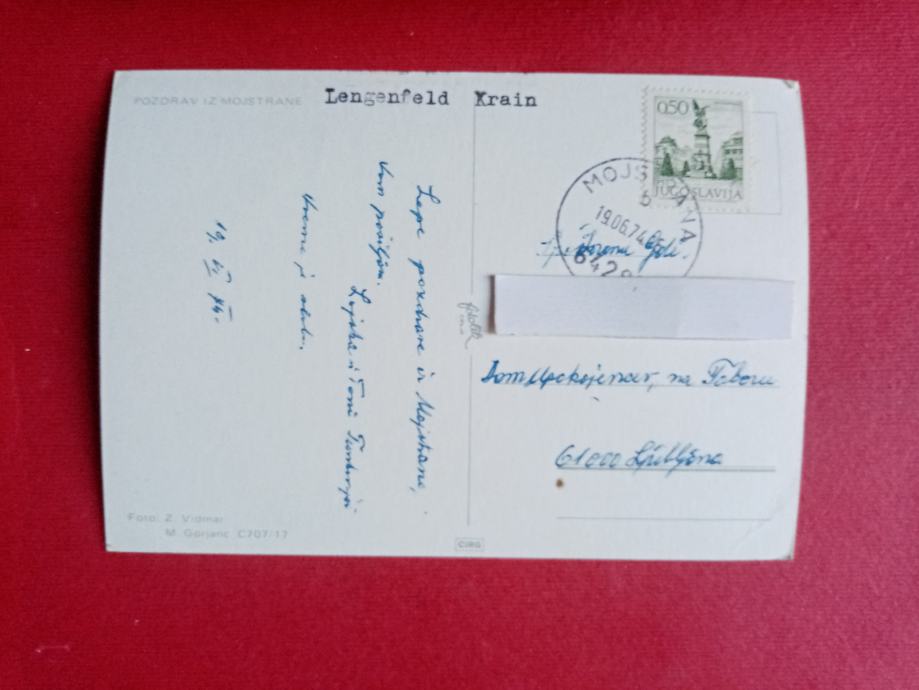 POZDRAV IZ MOJSTRANE
Lengenfeld Krain
Lepe pozdrave iz Mojstrane,
Vam pošiljam.
Lojzka i Toni
Vreme je
19. VI 74.
Foto: Z. Vidmar
M. Gorjanc C707/17
CIRG
0,50
JUGOSLAVIJA
MOJSTRANA
b
19.06.74
6428
Dom Upokojencev, na Taboru
61000 Ljubljana